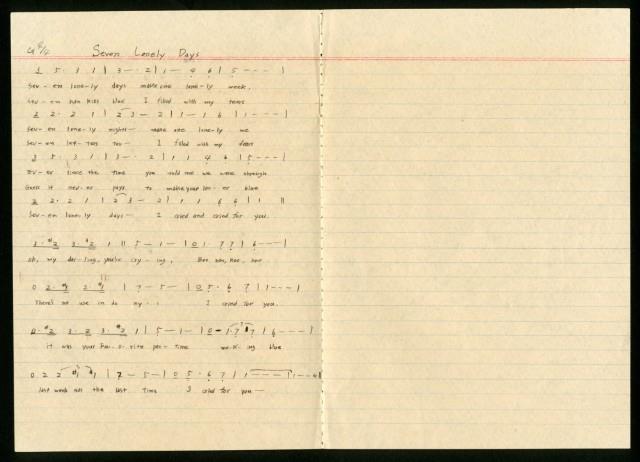 G 4/4 Seven Lonely Days
3 5 · 3 1 | 3 — · 2 | 1 — 4 6 | 5 - - - |
Sev - en lone-ly days make one lone-ly week,
Sev - en han kies blue I filled with my tears
2 2 · 2 1 | 2 3 — 2 | 1 — 1 6 | 1 - - - |
Sev - en lone-ly nights make one lone-ly me
Sev - en let-ters too I filled with my fears
3 5 · 3 1 | 3 — · 2 | 1 1 4 6 | 5 - - - |
Ev-er since the time you told me we were through
Guess it nev-er pays to make your lov-er blue
2 2 · 2 1 | 2 3 — 2 | 1 1 6 6 | 1 1 ||
Sev-en lonely days — I cried and cried for you.
3 · #2 3 · #2 1 || 5 — 1 — | 0 1 · 7 7 | 6 - - - |
Oh, my dar-ling, you're cry-ing, Boo hoo, hoo, hoo
0 2 · #1 2 · #1 | 7 — 5 — | 0 5 · 6 7 | 1 - - - |
There's no use in do my I cried for you.
0 · #2 3 · 2 3 · #2 1 | 5 — 1 — | 0 — 1 · 7 7 | 6 - - - |
it was your fav-o-rite pas-time making blue
0 2 2 #1 #1 | 7 — 5 — | 0 5 · 6 7 | 1 - - - | 1 - - 0 ||
last week was the last time I cried for you —